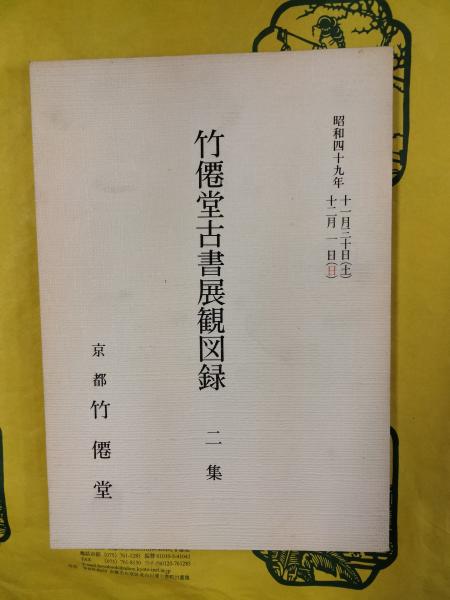 昭和四十九年
十一月三十日(土)
十二月 一日(日)
竹僊堂古書展観図録 二集
京都 竹僊堂
(075) 761-1285
FAX (075) 761-8150